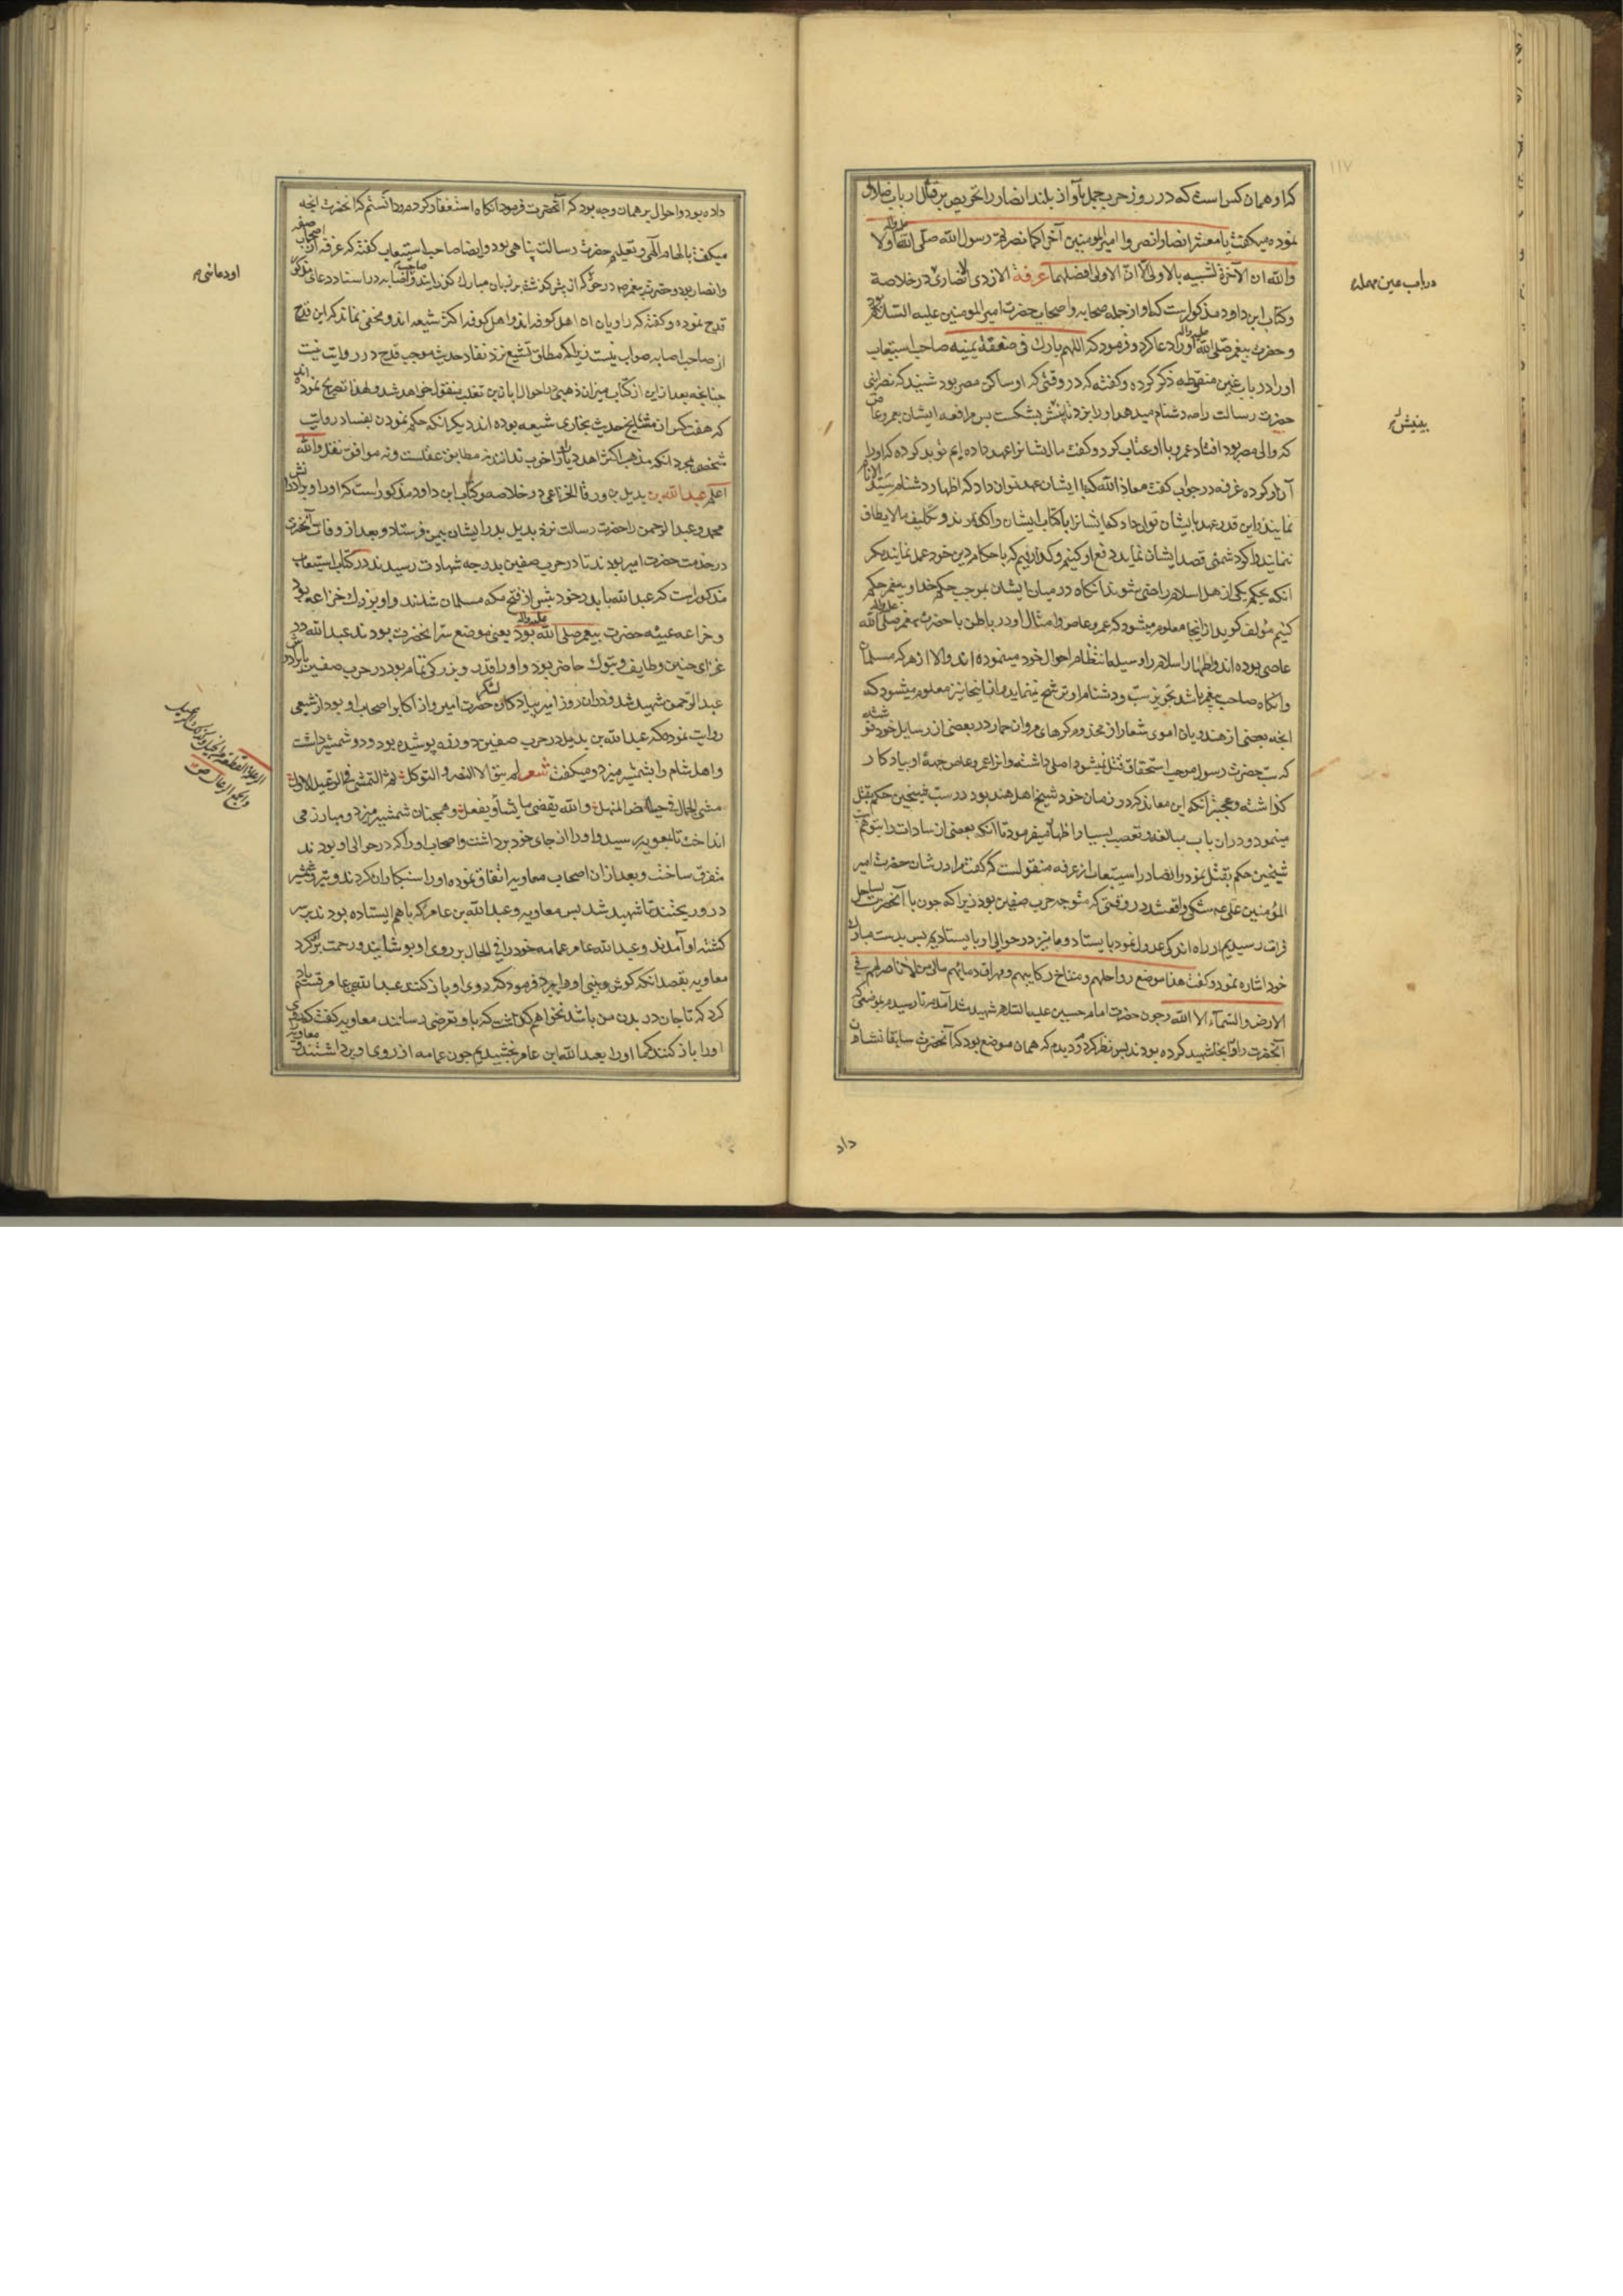 که او همان کس است که در روز حرب جمل بآواز بلند انصار را تحریص بر قتال ارباب ضلال
نموده میکفت یا معشر انصار انصروا امیر المومنین آخرا کما نصرتم رسول الله صلی الله علیه واله اولا
والله ان الآخرة لشبیه بالاولی الا ان الاولی افضلهما عرفة الازدی الانصاری در خلاصة
و کتاب ابن داود مذکور است که او از جمله صحابه و اصحاب حضرت امیر المومنین علیه السلام بود
و حضرت پیغمبر صلی الله علیه واله او را دعا کرد و فرمود که اللهم بارک فی صفقة یمینه صاحب استیعاب
او را در باب غین منقوطه ذکر کرده و کفته که در وقتی که او ساکن مصر بود شنید که نصرانی
حضرت رسالت را صم دشنام میدهد او را بزد تا بینیش بشکست پس مرافعه ایشان بعمرو عاص
که والی مصر بود افتاد عمرو با او عتاب کرد و کفت ما ایشانرا عهد داده ایم
آزار کرده غرفه در جواب کفت معاذ الله که با ایشان عهد توان داد که اظهار دشنام سید الانام
نمایند و این قدر عهد بایشان توان داد که ایشانرا با کتاب ایشان واکذارند و تکلیف ما لا یطاق
ننمایند و اکر دشمنی قصد ایشان نماید دفع او کنیم و کذاریم که باحکام دین خود عمل نمایند مکر
انکه بحکم یکی از اهل اسلام راضی شوند انکاه در میان ایشان بموجب حکم خدا و پیغمبر حکم
کنیم مؤلف کوید از اینجا معلوم میشود که عمرو عاص و امثال او در باطن با حضرت پیغمبر صلی الله علیه واله
عاصی بوده اند و اظهار اسلام را وسیله انتظام احوال خود مینموده اند و الا از هر که مسلمان
و انکاه صاحب پیغمبر باشد تجویز سب و دشنام او ترشح نمینماید و از اینجا نیز معلوم میشود که
انچه بعضی از هندویان اموی شعار از مخدوم کرهای مروان حمار در بعضی از رسایل خود نوشته
که سب حضرت رسول موجب استحقاق قتل نمیشود اصلی داشته و انرا عمرو عاص جهة او بیادکار
کذاشته و عجبتر آنکه این معاند کر در زمان خود شیخ اهل هند بود در سب شیخین حکم بقتل
مینمود و در ان باب مبالغه و تعصب بسیار اظهار میفرمود تا آنکه بعضی از سادات را بتوهم سب
شیخین حکم بقتل نمود و ایضا در استیعاب از عرفه منقولست که کفت مرا در شان حضرت امیر
المؤمنین علی عم شکی واقع شد در وقتی که متوجه حرب صفین بود زیرا که چون با آنحضرت بساحل
فرات رسیدیم از راه اندکی عدول نمود بایستاد و ما نیز در حوالی او بایستادیم پس بدست مبارک
خود اشاره نمود و کفت هذا موضع رواحلهم و مناخ رکابهم و مهراق دمائهم بابی من لا ناصر لهم فی
الارض والسماء الا الله و چون حضرت امام حسین علیه السلام شهید شد آمدم تا رسیدم بموضعی که
آنحضرت را در انجا شهید کرده بودند پس نظر کردم و دیدم که همان موضع بود که آنحضرت سابقا نشان
داد
۱۱۷
در باب عین مهمله
بینیش
داده بود و احوال بر همان وجه بود که آنحضرت فرمود انکاه استغفار کردم و دانستم که انحضرت انچه
میکفت بالهام الهی و تعلیم حضرت رسالت پناهی بود و ایضا صاحب استیعاب کفته که غرفه از اصحاب صفه
و انصار بود و حضرت پیغمبر صم در حق او انچه پیش کذشت بر زبان مبارک کذرانیدند و صاحب اصابه در اسناد دعای مذکور
قدح نموده و کفته که راویان ان اهل کوفه اند و اهل کوفه اکثر شیعه اند و مخفی نماند که این قدح
از صاحب اصابه صواب نیست زیرا که مطلق تشیع نزد نقاد حدیث موجب قدح در روایت نیست
چنانچه بعد از این از کتاب میزان ذهبی در احوال ابان بن تغلب منقول خواهد شد و لهذا تصریح نموده اند
که هفت کس از مشایخ حدیث بخاری شیعه بوده اند دیکر انکه حکم نمودن بفساد روایت
شخصی بمجرد انکه مذهب اکثر اهل دیار او را خوب ندانند نه مطابق عقلست و نه موافق نقل والله
اعلم عبدالله بن بدیل بن ورقا الخزاعی در خلاصه و کتاب ابن داود مذکور است که او را و برادرانش
محمد و عبدالرحمن را حضرت رسالت نزد بدیل پدر ایشان بیمن فرستاد و بعد از وفات آنحضرت
در خدمت حضرت امیر بودند تا در حرب صفین بدرجه شهادت رسیدند در کتاب استیعاب
مذکور است که عبدالله با پدر خود پیش از فتح مکه مسلمان شدند و او بزرک خزاعه بود
و خزاعه عیبه حضرت پیغمبر صلی الله علیه واله بود یعنی موضع سر انحضرت بودند عبدالله در
غزای حنین و طایف و تبوک حاضر بود و او را قدر و بزرکی تمام بود در حرب صفین با برادرش
عبدالرحمن شهید شد و دران روز امیر پیادکان لشکر حضرت امیر و از اکابر اصحاب او بود از شعبی
روایت نموده که عبدالله بن بدیل در حرب صفین دو زره پوشیده بود و دو شمشیر داشت
و اهل شام را بشمشیر میزد و میکفت شعر لم یبق الا الصبر والتوکل ثم التمشی فی الرعیل الاول
مشی الجمال فی حیاض المنهل والله یقضی ما یشأ و یفعل و همچنان شمشیر میزد و مبارز می
انداخت تا بمعویه رسید و او را از جای خود برداشت و اصحاب او را که در حوالی او بودند
متفرق ساخت و بعد از ان اصحاب معاویه اتفاق نموده او را سنکباران کردند و تیر و شمشیر
درو ریختند تا شهید شد پس معاویه و عبدالله بن عامر که باهم ایستاده بودند بر سر
کشته او آمدند و عبدالله عامر عمامه خود را فی الحال بر روی او پوشانید و رحمت برو کرد
معاویه بقصد انکه کوش و بینی او را ببرد فرمود که روی او باز کنند عبدالله بن عامر قسم یاد
کرد که تا جان در بدن من باشد نخواهم کذاشت که باو تعرضی رسانند معاویه کفت که روی
او را باز کنید که ما او را بعبدالله ابن عامر بخشیدیم چون عمامه از روی او برداشتند معاویه